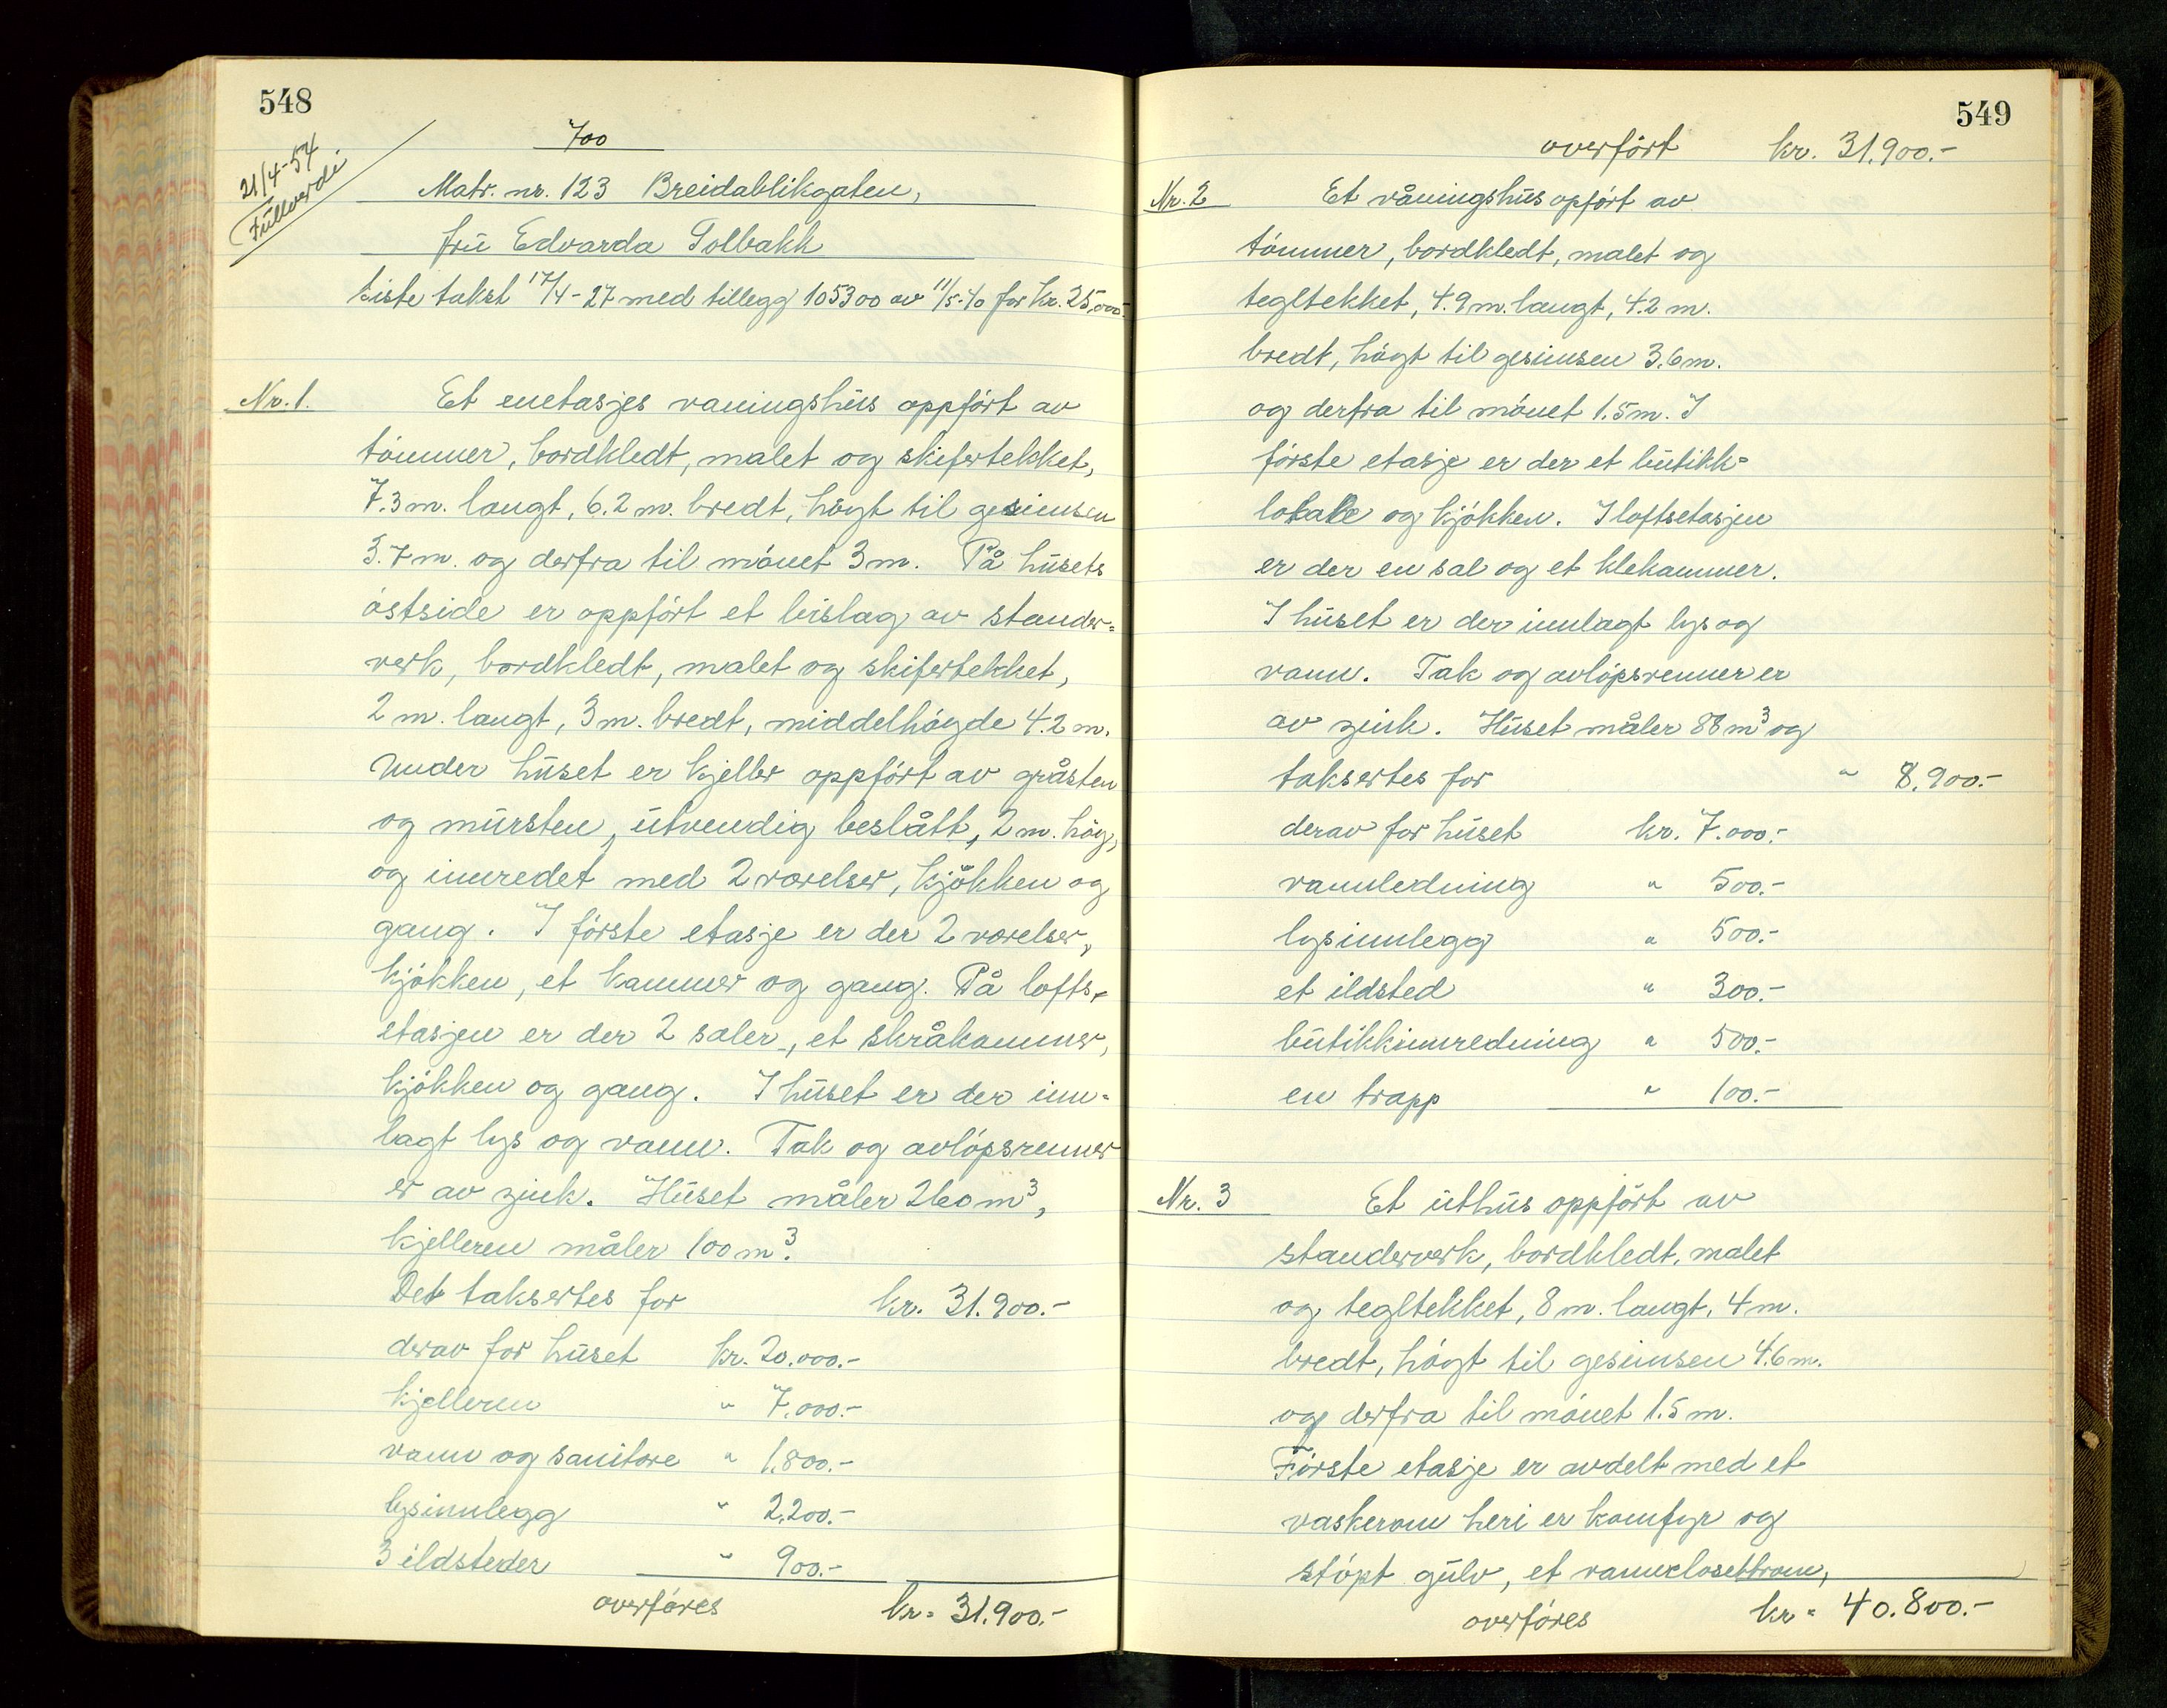 548
21/4-54
Fullverdi
700
Matr. nr. 123 Breidablikgaten,
fru Edvarda Solbakk
siste takst 17/4-27 med tillegg 105300 av 11/5-40 for kr. 25,000.-
Nr. 1. Et enetasjes vaningshus oppført av
tømmer, bordkledt, malet og skifertekket,
7.3 m. langt, 6.2 m. bredt, høgt til gesimsen
3.7 m. og derfra til mønet 3 m. På husets
østside er oppført et bislag av stander=
verk, bordkledt, malet og skifertekket,
2 m. langt, 3 m. bredt, middelhøgde 4.2 m.
Under huset er kjeller oppført av gråsten
og mursten, utvendig beslått, 2 m. høg,
og innredet med 2 værelser, kjøkken og
gang. I første etasje er der 2 værelser,
kjøkken, et kammer og gang. På lofts-
etasjen er der 2 saler, et skråkammer,
kjøkken og gang. I huset er der inn=
lagt lys og vann. Tak og avløpsrenner
er av zink. Huset måler 260 m³,
kjelleren måler 100 m³.
Det taksertes for kr. 31.900.-
derav for huset kr. 20.000.-
kjelleren " 7.000.-
vann og sanitære " 1.800.-
lysinnlegg " 2.200.-
3 ildsteder " 900.-
overføres kr. 31.900.-
549
overført kr. 31.900.-
Nr. 2 Et våningshus opført av
tømmer, bordkledt, malet og
tegltekket, 4.9 m. langt, 4.2 m.
bredt, høgt til gesimsen 3.6 m.
og derfra til mønet 1.5 m. I
første etasje er der et butikk=
lokale og kjøkken. I loftsetasjen
er der en sal og et klekammer.
I huset er der innlagt lys og
vann. Tak og avløpsrenner er
av zink. Huset måler 88 m³ og
taksertes for " 8.900.-
derav for huset kr. 7.000.-
vannledning " 500.-
lysinnlegg " 500.-
et ildsted " 300.-
butikkinnredning " 500.-
en trapp " 100.-
Nr. 3 Et uthus oppført av
standerverk, bordkledt, malet
og tegltekket, 8 m. langt, 4 m.
bredt, høgt til gesimsen 4.6 m.
og derfra til mønet 1.5 m.
Første etasje er avdelt med et
vaskerom heri er komfyr og
støpt gulv, et vannclosettrom,
overføres kr. 40.800.-